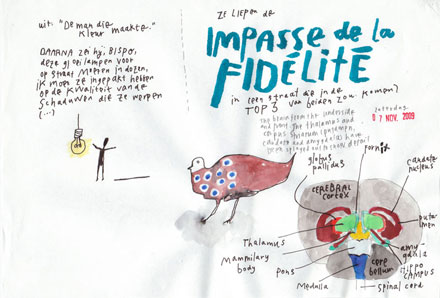 uit: "De man die
Kleur maakte."
DAARNA zei hij, BISPO,
deze gloeilampen voor
op straat MOETEN in dozen,
ik moet ze ingepakt hebben
op de Kwaliteit van de
Schaduwen die ze werpen
(...)
ZE LIEPEN de
IMPASSE de la
FIDÉLITÉ
in (een straat die in de
TOP 3 van beiden zou komen)
zaterdag
07 NOV. 2009
the brain from the underside
and front. The thalamus and
corpus striatum (putamen,
caudate and amygdala) have
been splayed out to show detail
globus
pallidus
fornix
caudate
nucleus
CEREBRAL
CORTEX
putamen
Thalamus
Mammilary
body
amygdala
HIPPO
CAMPUS
pons
cere
bellum
Medulla
spinal cord